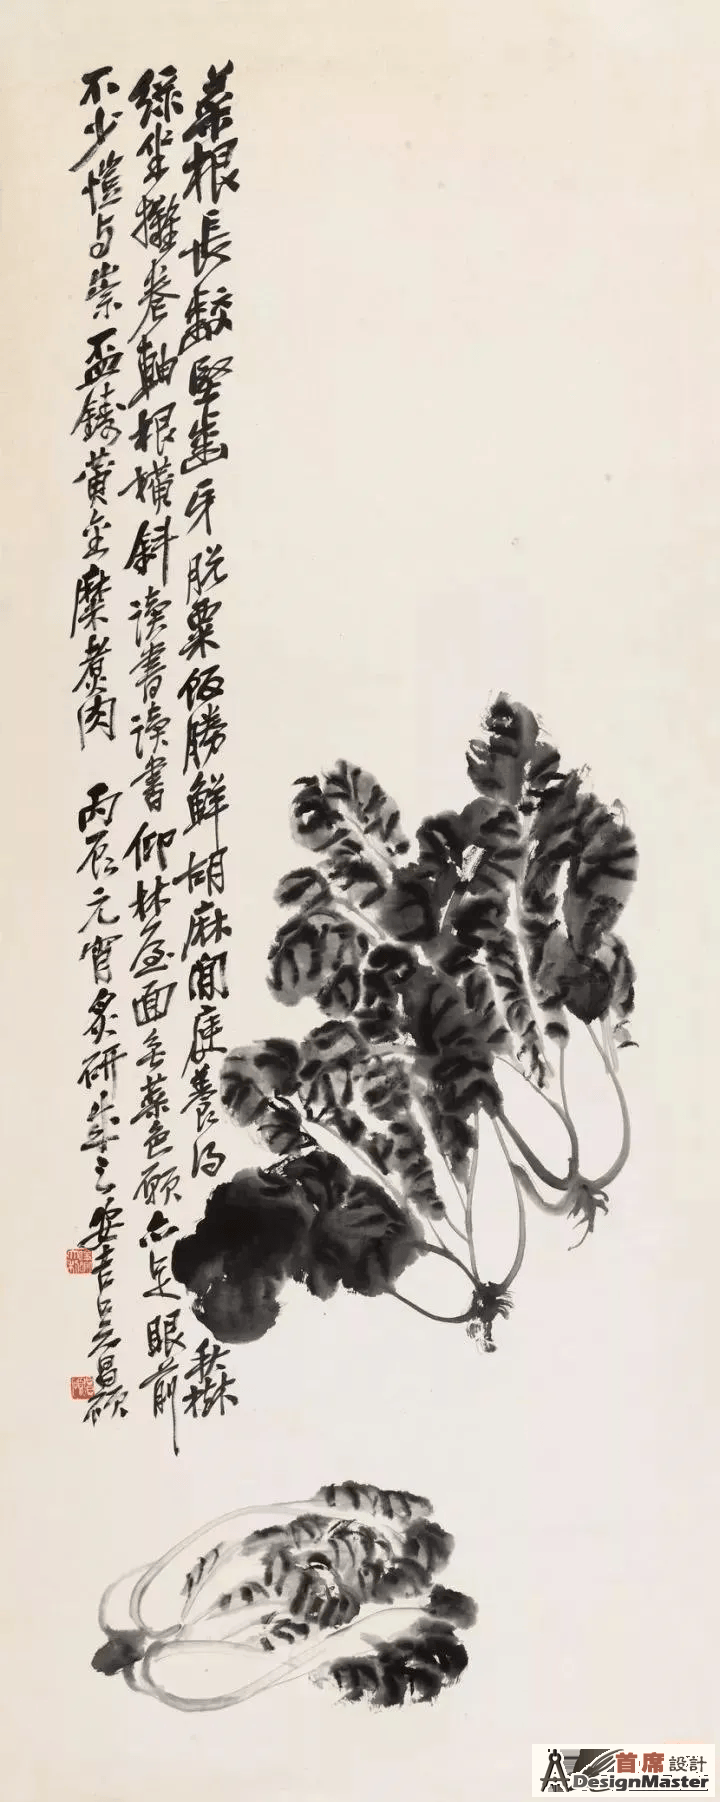 菜根長齩堅齒牙脫粟飯勝鮮胡麻閒庭養得秋樹
綠坐擁卷軸根橫斜讀書讀書仰林屋面無菜色願亦足眼前
不少愷與崇盃鑄黃金糜煮肉 丙辰元宵炙研成之安吉吳昌碩
首席設計
DesignMaster